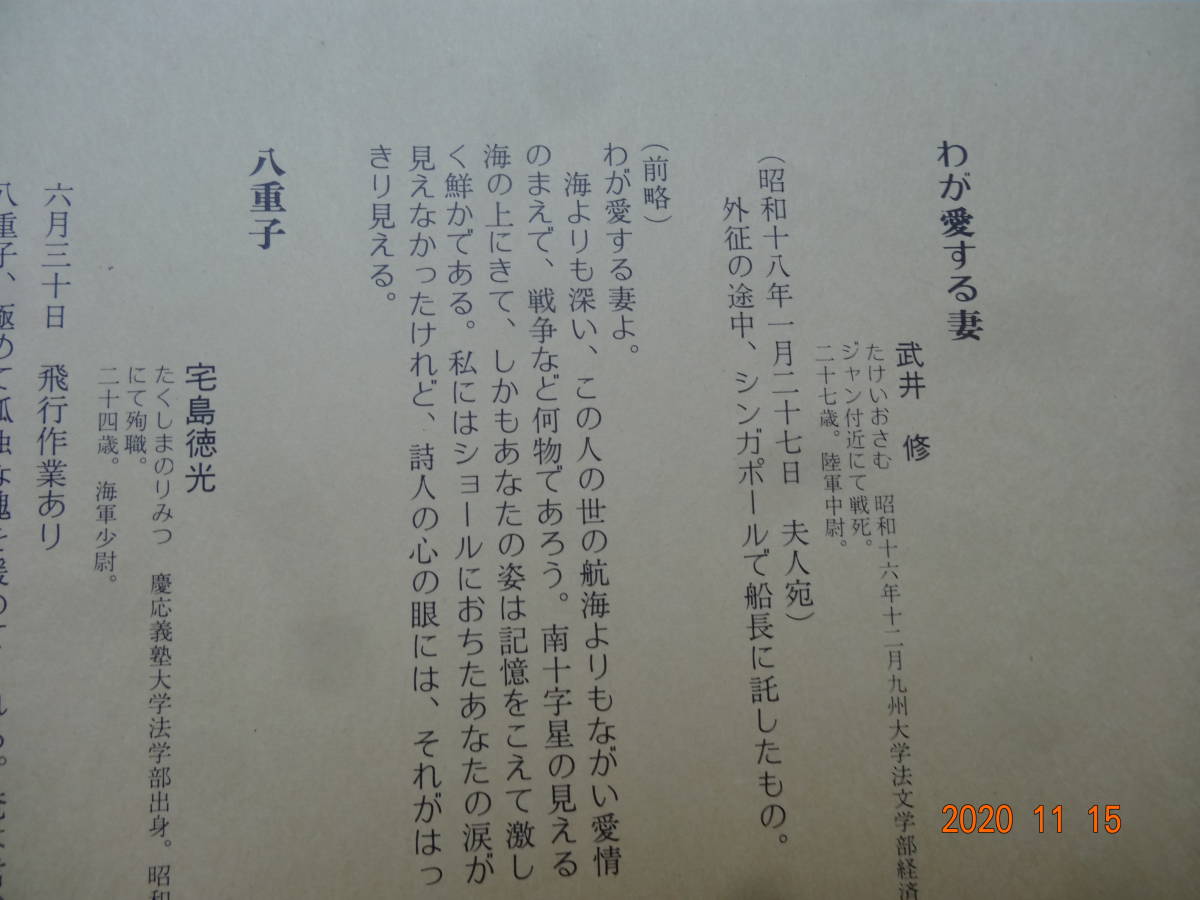 わが愛する妻
武井 修
たけいおさむ 昭和十六年十二月九州大学法文学部経済
ジャン付近にて戦死。
二十七歳。陸軍中尉。
（昭和十八年一月二十七日 夫人宛）
外征の途中、シンガポールで船長に託したもの。
（前略）
わが愛する妻よ。
海よりも深い、この人の世の航海よりもながい愛情
のまえで、戦争など何物であろう。南十字星の見える
海の上にきて、しかもあなたの姿は記憶をこえて激し
く鮮かである。私にはショールにおちたあなたの涙が
見えなかったけれど、詩人の心の眼には、それがはっ
きり見える。
八重子
宅島徳光
たくしまのりみつ 慶応義塾大学法学部出身。昭和
にて殉職。
二十四歳。海軍少尉。
六月三十日 飛行作業あり
八重子、極めて孤独な魂を
2020 11 15